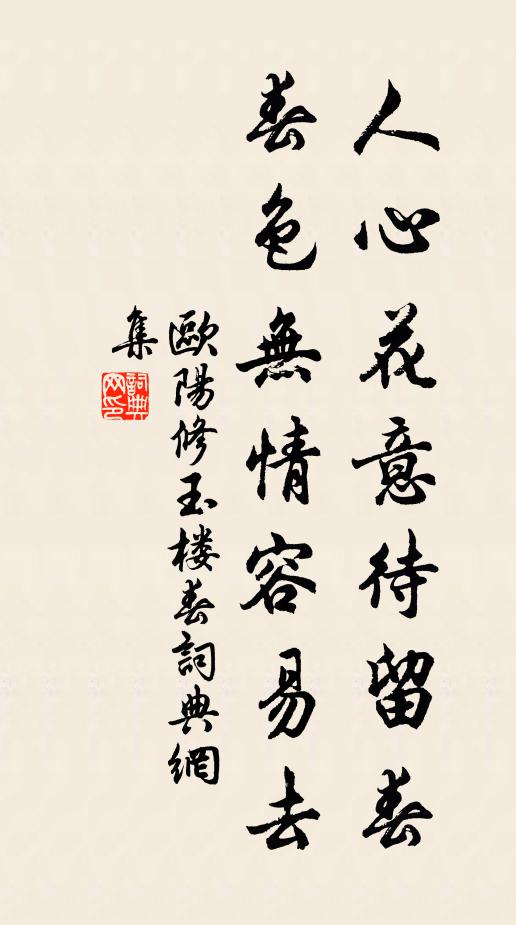 人心花意待留春
春色無情容易去
歐陽修玉楼春詞典網
集
詞典网印